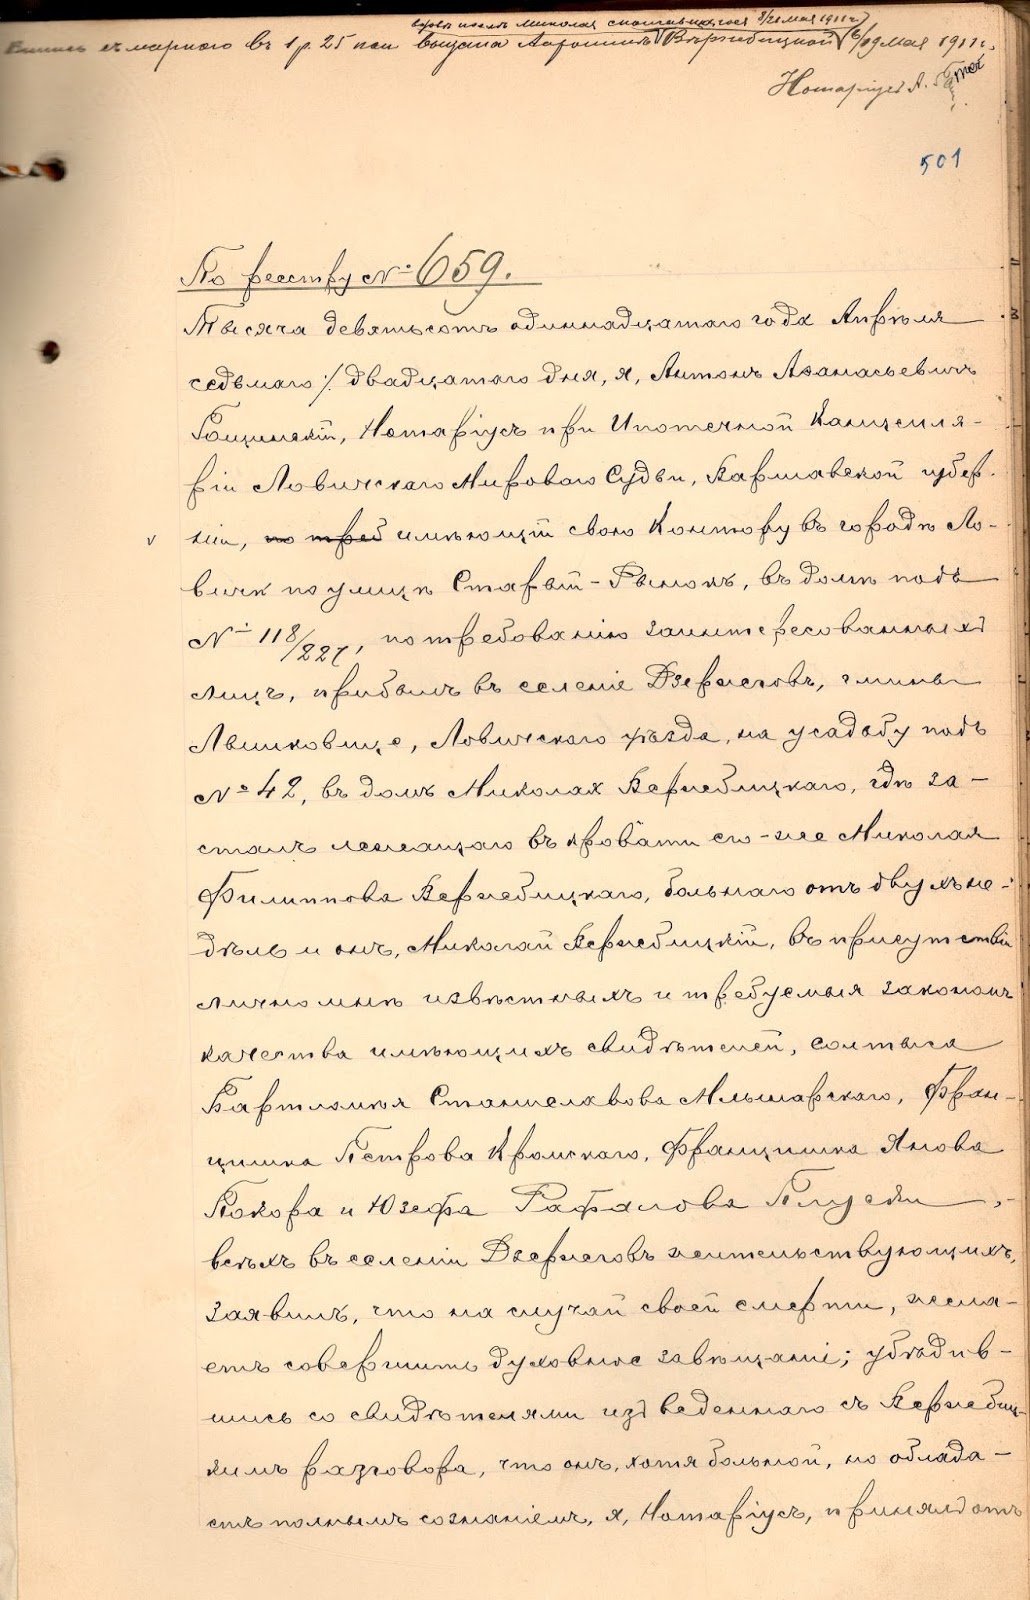 вдовѣ послѣ Николая скончавшагося 8/21 мая 1911 г.
Выпись съ маркою въ 1 р. 25 коп выдана Вержбицкой 6/19 мая 1911 г.
Нотаріусъ А.
501
По реестру № 659.
Тысяча девятьсотъ одиннадцатаго года Апрѣля
седьмого / двадцатаго дня, я, Антонъ Аѳанасьевичъ
Нотаріусъ при Ипотечной Канцеля-
ріи Ловичскаго Мирового Судьи, Варшавской губер-
ніи, по треб имѣющій свою Контору въ городѣ Ло-
вичѣ по улицѣ Старый-Рынокъ, въ домѣ подъ
№ 118/227, по требованію заинтересованныхъ
лицъ, прибылъ въ селеніе Дзержговъ, гмины
Лышковице, Ловичскаго уѣзда, на усадьбу подъ
№ 42, въ домъ Николая Вержбицкаго, гдѣ за-
сталъ лежащаго въ кровати его-же Николая
Филиппова Вержбицкаго, больнаго отъ двухъ не-
дѣль и онъ, Николай Вержбицкій, въ присутствіи
лично мнѣ извѣстныхъ и требуемыя закономъ
качества имѣющихъ свидѣтелей, солтыса
Бартломея Станиславова Мльшарскаго, Фран-
цишка Петрова Кромскаго, Францишка Янова
Кокора и Юзефа Рафалова Плуски,
всѣхъ въ селеніи Дзержговъ жительствующихъ,
заявилъ, что на случай своей смерти, жела-
етъ совершить духовное завѣщаніе; убѣдив-
шись со свидѣтелями изъ веденнаго съ Вержбиц-
кимъ разговора, что онъ, хотя больной, но облада-
етъ полнымъ сознаніемъ, я, Нотаріусъ, принялъ отъ